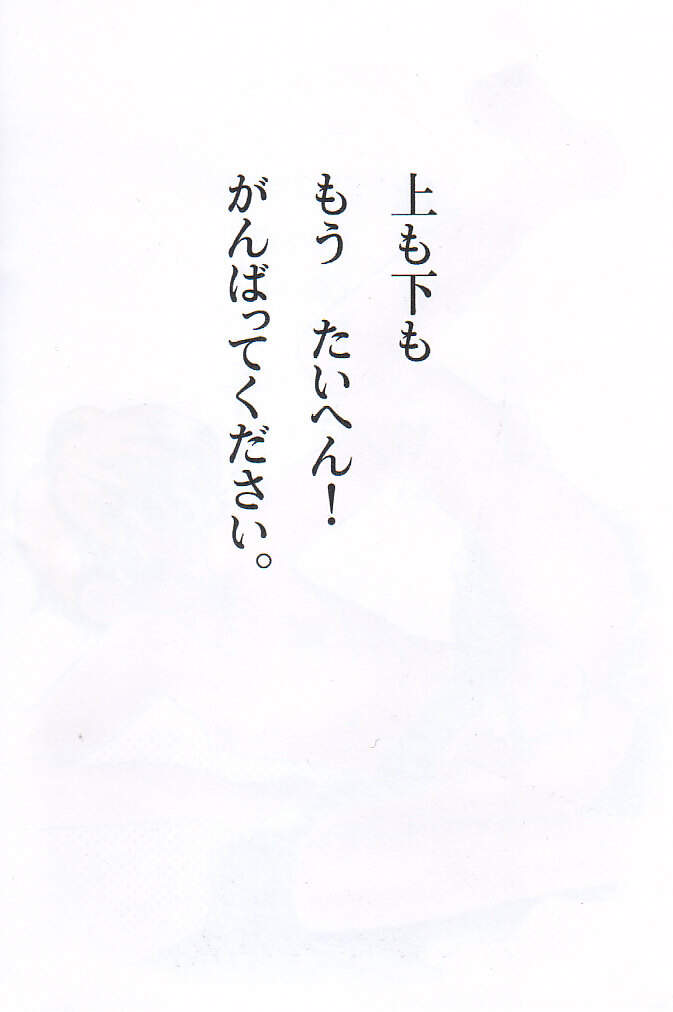 上も下も
もう　たいへん！
がんばってください。